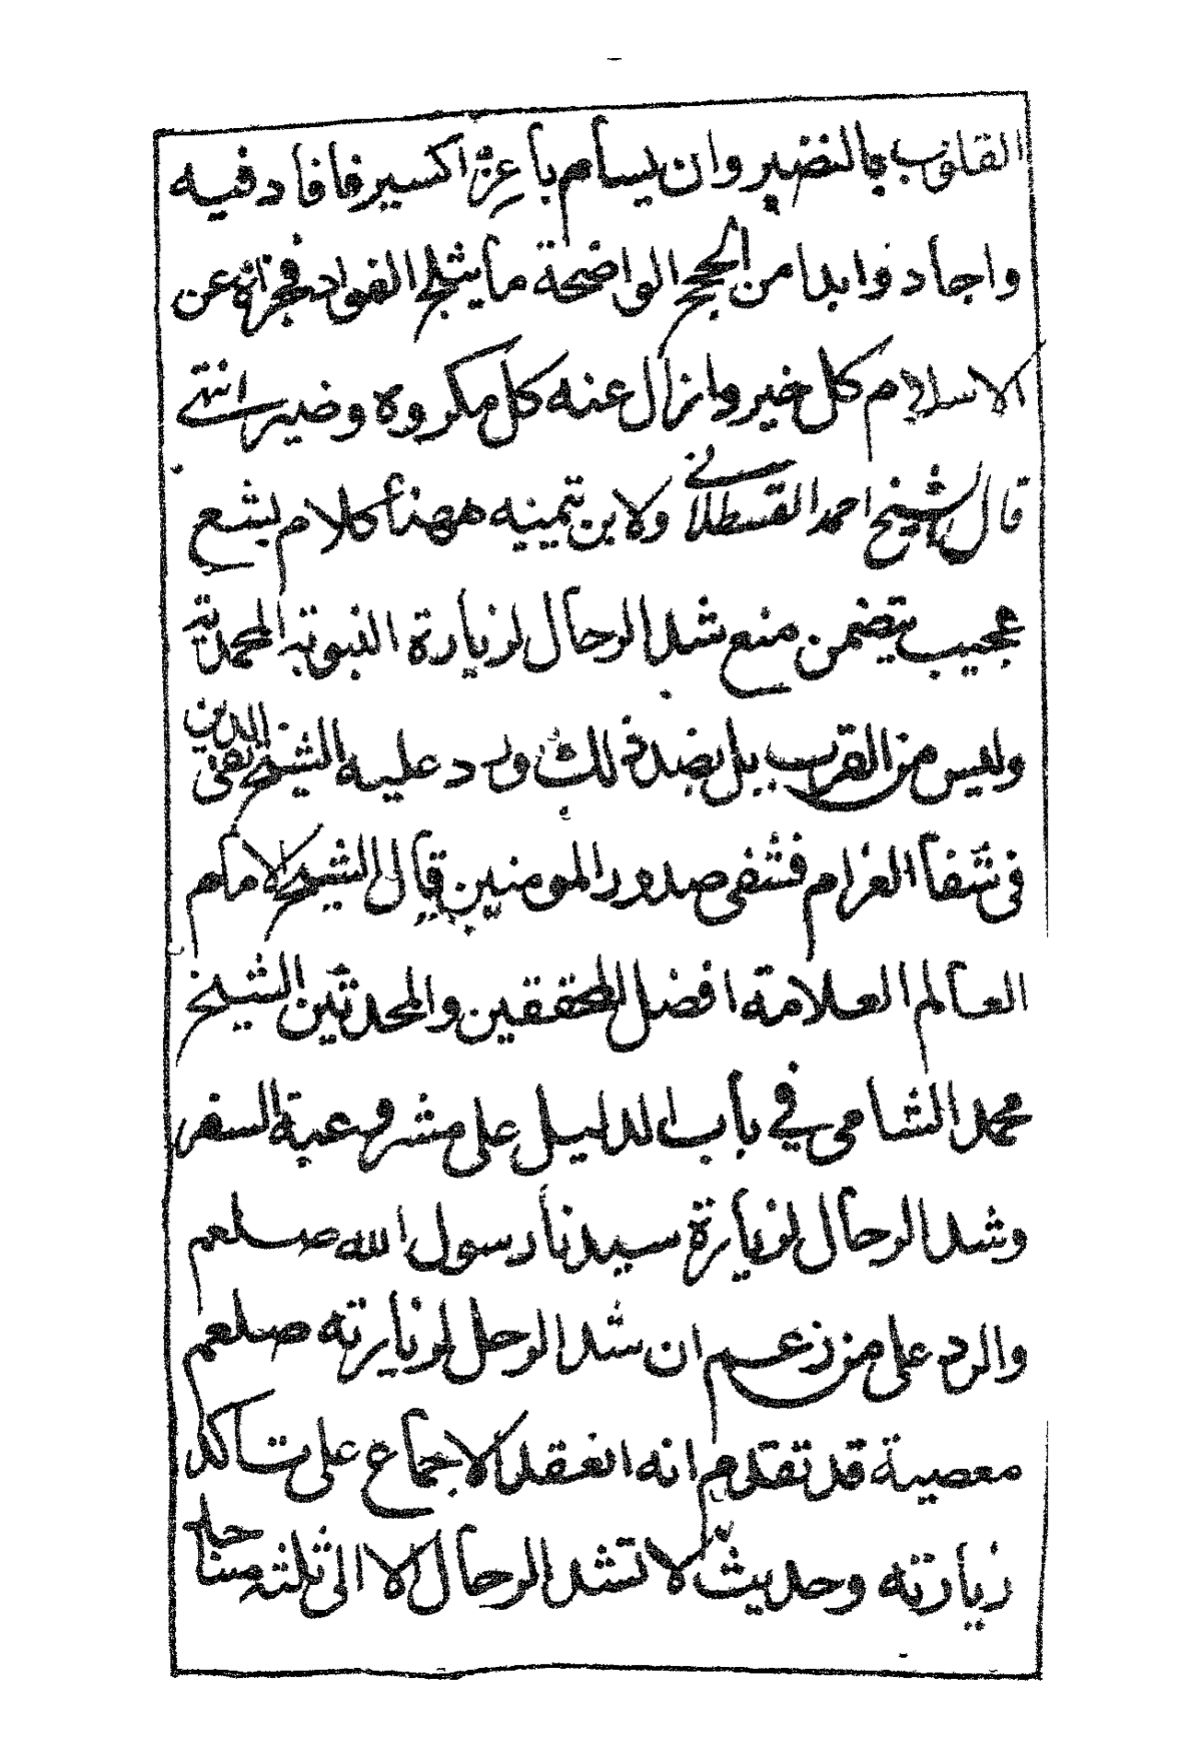 القلوب بالنضير وان يسام باعز اكسير فافاد فيه
واجاد وابدا من الحجج الواضحة ما يثلج الفواد فجزاه عن
الاسلام كل خير وازال عنه كل مكروه وضير انتهى
قال الشيخ احمد القسطلاني ولابن تيمية ههنا كلام بشع
عجيب يتضمن منع شد الرحال لزيارة النبوية المحمدية
وليس من القرب بل بضد ذلك ورد عليه الشيخ تقى الدين
فى شفا الغرام فشفى صدور المومنين قال الشيخ الامام
العالم العلامة افضل المحققين والمحدثين الشيخ
محمد الشامى في باب الدليل على مشروعية السفر
وشد الرحال لزيارة سيدنا رسول الله صلعم
والرد على من زعم ان شد الرحل لزيارته صلعم
معصية قد تقدم انه انعقد الاجماع على تاكد
زيارته وحديث لا تشد الرحال الا الى ثلثه مساجد